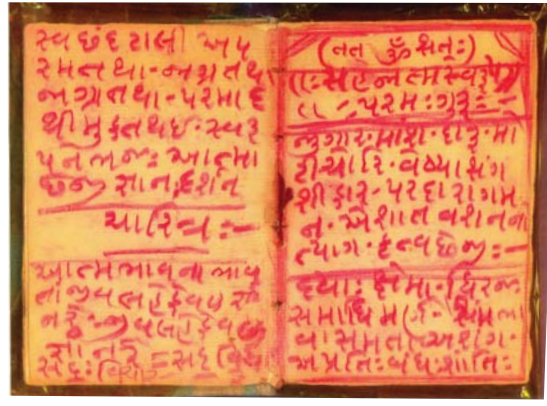 સ્વછંદટાલી અપ
રમતથા-અપ્રતથ
અગ્રતથા-પરમાદ
થીમુક્તથઈ-સ્વરૂ
પનેભજઃ આત્મા
છેજી જ્ઞાન, દર્શન
ચારિત્રઃ-
આત્મભાવના ભાવ
તાં જીવ લહે કેવલ જ્ઞા
ન રે :- જીવ લહે કેવલ
જ્ઞાન રે = સદ્ વિચ
(તત ૐ સતઃ)
ાઃ સહેજાત્મસ્વરૂપ
પરમઃગુરૂઃ-
જુગાર-માંશ-દારૂ-મા
ટીચોરિ-વેષ્યાસંગ
શીકાર-પરદારાગમ
ન-એ શાત વશનના
ત્યાગ-કર્તવ્ય છેજીઃ-
દયાઃ ક્ષેમા-ધિરજ
સમાધિમર્ણ-સમભા
વ સમતા અસંગ-
અપ્રતિઃબંધઃશાંતિઃ